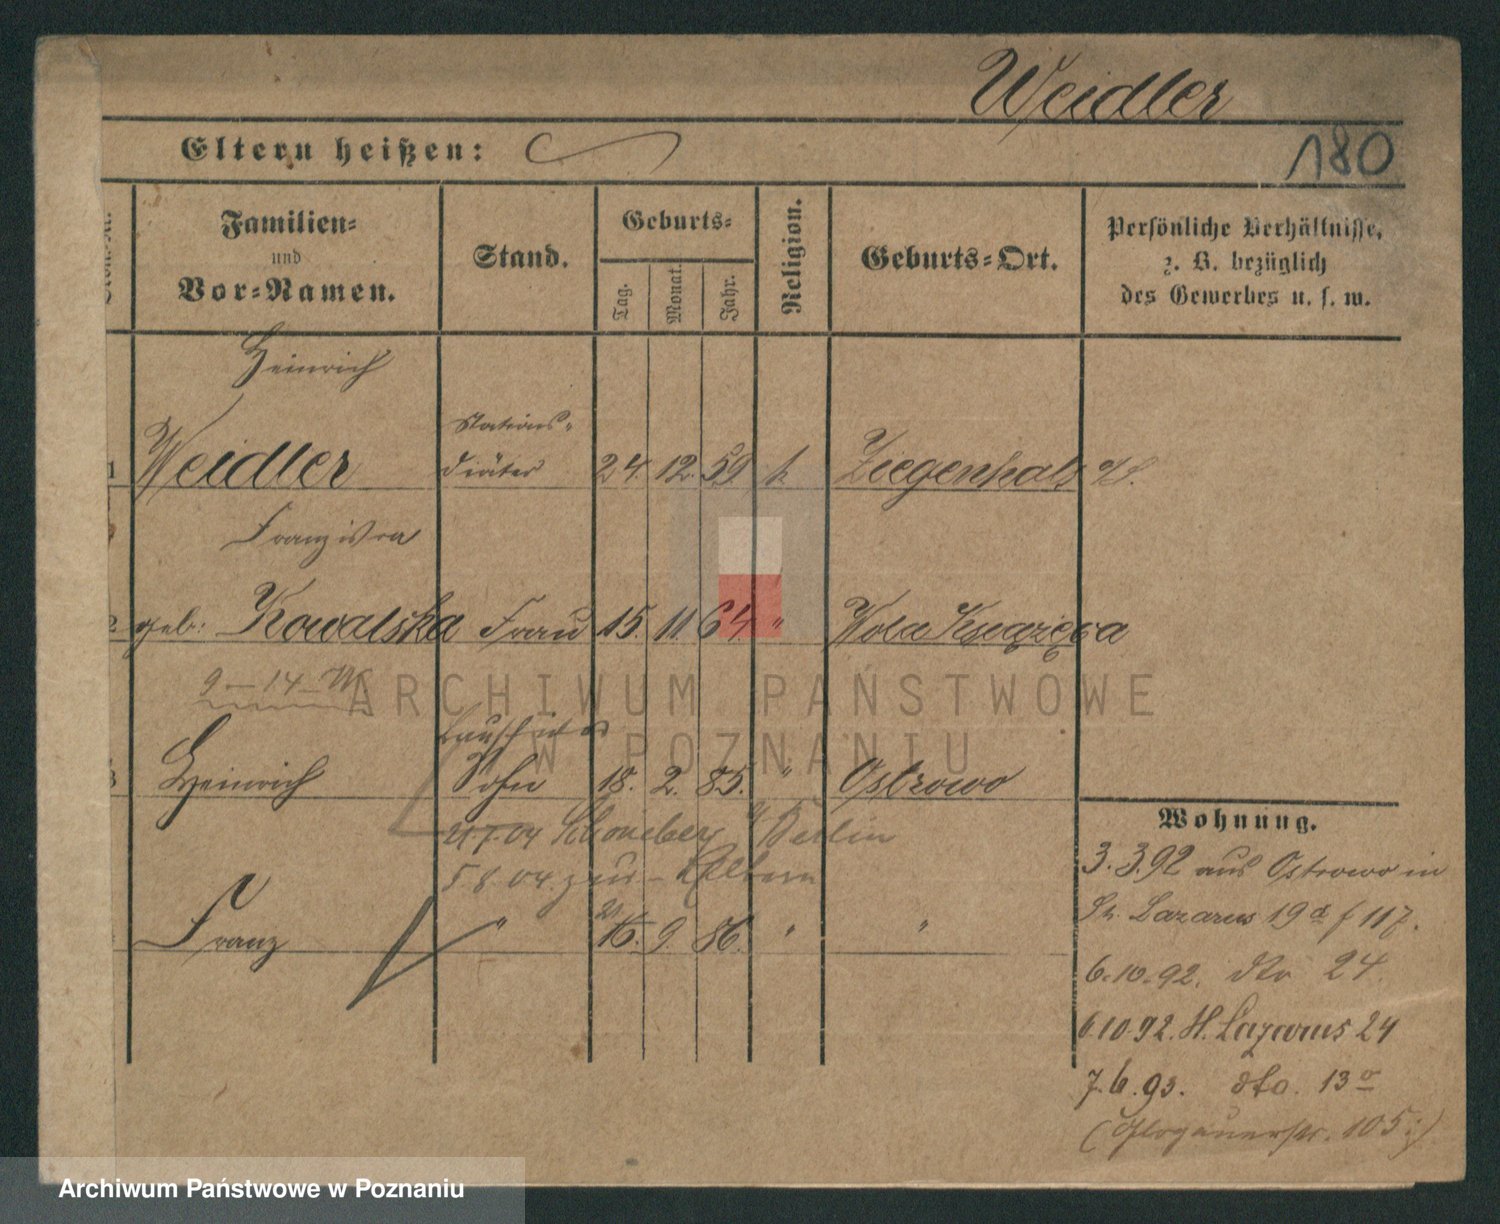 Weidler
180
Eltern heißen:
Familien-
und
Vor-Namen.
Stand.
Geburts-
Tag.
Monat.
Jahr.
Religion.
Geburts-Ort.
Persönliche Verhältnisse,
z. B. bezüglich
des Gewerbes u. s. w.
Heinrich
1 Weidler
Stations-
Diätar
24. 12. 59 k. Ziegenhals
Franziska
2 geb: Kowalska Frau 15. 11 64. " Wola Książęca
9-14-
3 Heinrich Sohn 18. 2. 85. " Ostrowo
04 Schöneberg Berlin
5 8. 04. zu Eltern
Franz " 9. 86. " "
Wohnung.
3. 3. 92 aus Ostrowo in
St. Lazarus 19 117.
6.10.92. dto 24.
6.10.92. St. Lazarus 24
7.6.93. dto. 13
(Glogauerstr. 105.)
ARCHIWUM PAŃSTWOWE
W POZNANIU
Archiwum Państwowe w Poznaniu